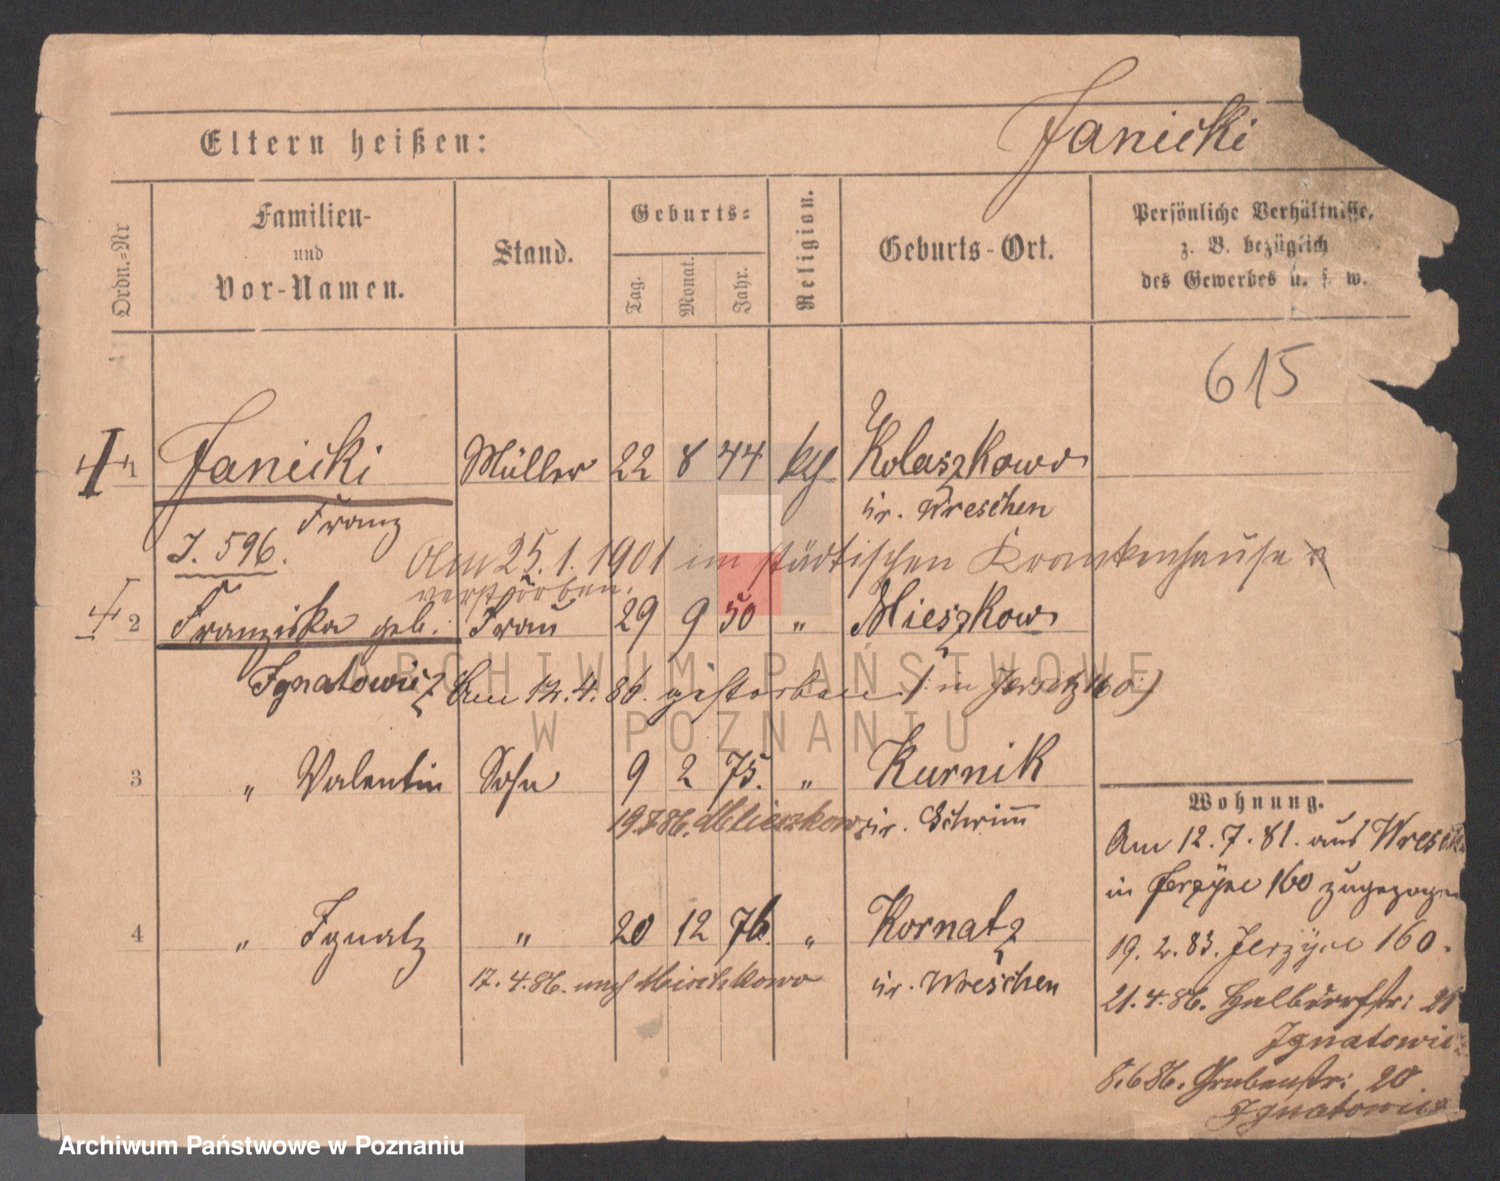 Janicki
Eltern heißen:
Ordn.-Nr
Familien-
und
Vor-Namen.
Stand.
Geburts-
Tag.
Monat.
Jahr.
Religion.
Geburts-Ort.
Persönliche Verhältnisse,
z. B. bezüglich
des Gewerbes u. s. w.
615
1 Janicki Müller 22 8 44 kth Kolaszkowo
Franz kr. Wreschen
J. 596.
Am 25.1.1901 im städtischen Krankenhause
verstorben.
2 Franziska geb. Frau 29 9 50 " Mieszkow
Ignatowicz Am 12.4.86. gestorben (in Jersitz 160)
3 " Valentin Sohn 9 2 75. " Kurnik
kr. Schrimm
4 " Ignatz " 20 12 76. " Kornatz
17.4.86. nach Mieschkowo kr. Wreschen
Wohnung.
Am 12.7.81. aus
in Jerzyce 160 zugezogen
19.2.83. Jerzyce 160.
21.4.86. Halbdorfstr:
Ignatowicz
8.6 86. Grabenstr: 20
Ignatowicz
ARCHIWUM PAŃSTWOWE
W POZNANIU
Archiwum Państwowe w Poznaniu